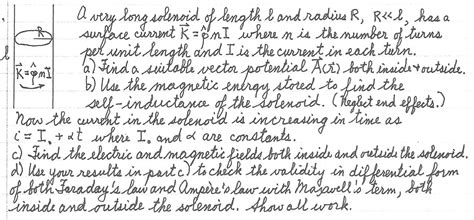 A very long solenoid of length l and radius R, R<<l, has a
surface current K⃗ = φ̂nI where n is the number of turns
per unit length and I is the current in each turn.
a) Find a suitable vector potential A⃗(r⃗) both inside + outside.
b) Use the magnetic energy stored to find the
self-inductance of the solenoid. (Neglect end effects.)
Now the current in the solenoid is increasing in time as
i = I₀ + αt where I₀ and α are constants.
c) Find the electric and magnetic fields both inside and outside the solenoid.
d) Use your results in part c) to check the validity in differential form
of both Faraday's law and Ampere's law with Maxwell's term, both
inside and outside the solenoid. Show all work.
l
R
K⃗=φ̂nI